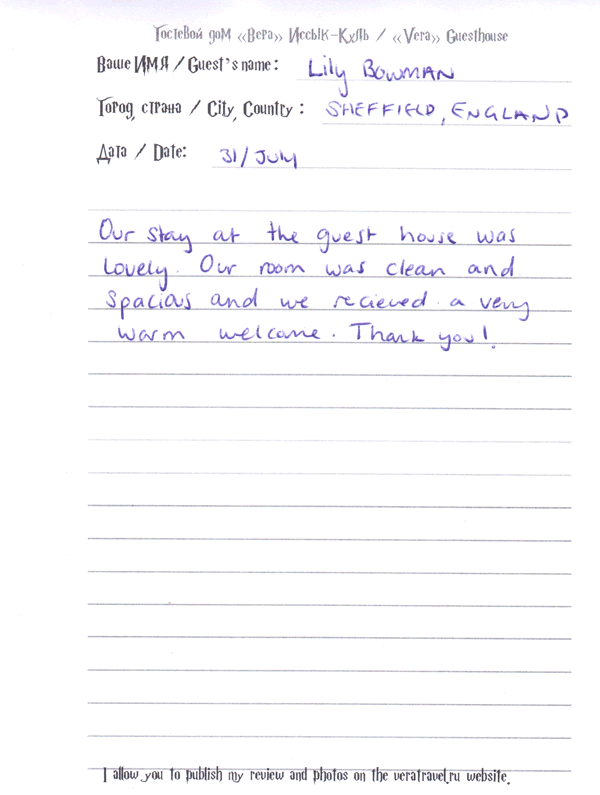 Гостевой дом «Вера» Иссык-Куль / «Vera» Guesthouse
Ваше ИМЯ / Guest's name: Lily BOWMAN
Город, страна / City, Country: SHEFFIELD, ENGLAND
Дата / Date: 31/July
Our stay at the guest house was
lovely. Our room was clean and
spacious and we recieved a very
warm welcome. Thank you!
I allow you to publish my review and photos on the veratravel.ru website.